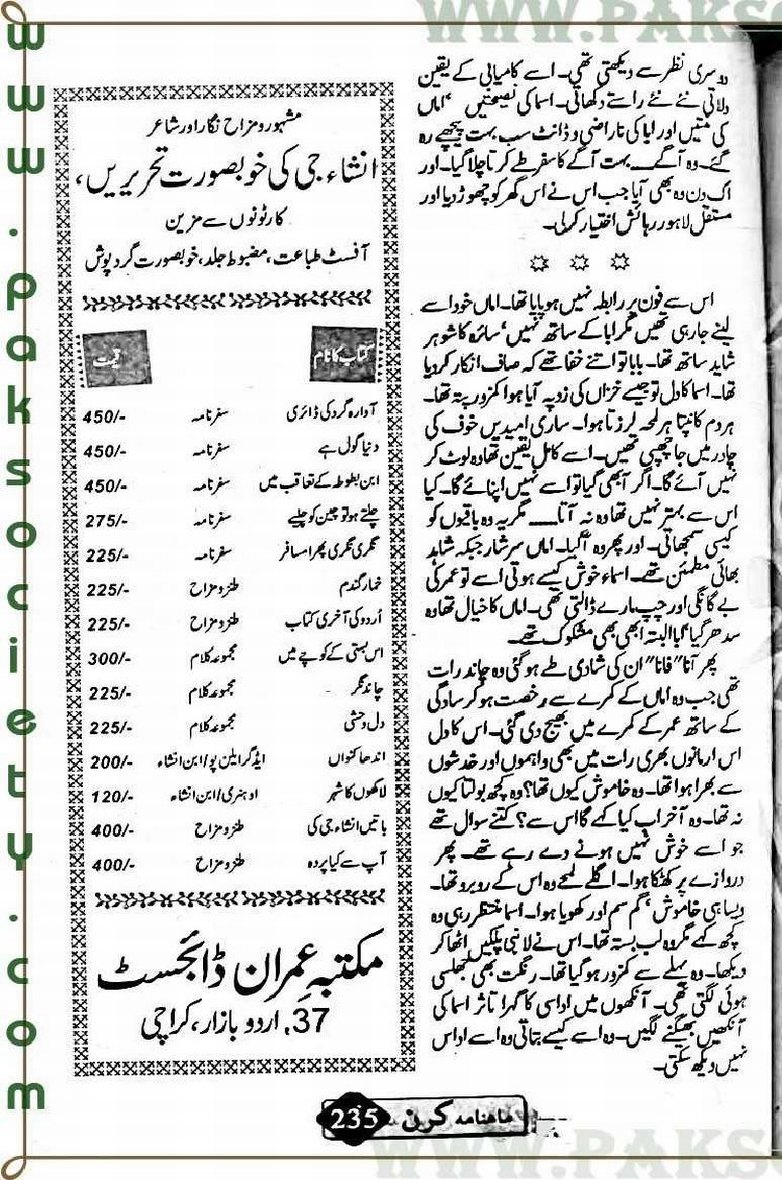 WWW.PAKS
www.paksociety.com
دوسری نظر سے دیکھتی تھی۔ اسے کامیابی کے یقین
دلاتی نئے نئے راستے دکھاتی۔ اسما کی نصیحتیں ‘اماں
کی منتیں اور ابا کی ناراضی و ڈانٹ سب بہت پیچھے رہ
گئے۔ وہ آگے۔۔۔ بہت آگے کا سفر طے کرتا چلا گیا۔ اور
اک دن وہ بھی آیا جب اس نے اس گھر کو چھوڑ دیا اور
مستقل لاہور رہائش اختیار کرلی۔
☼ ☼ ☼
اس سے فون پر رابطہ نہیں ہو پایا تھا۔ اماں خود اسے
لینے جارہی تھیں مگر ابا کے ساتھ نہیں‘ سائرہ کا شوہر
شاہد ساتھ تھا۔ بابا تو اتنے خفا تھے کہ صاف انکار کردیا
تھا۔ اسما کا دل تو جیسے خزاں کی زد پہ آیا ہوا کمزور پتہ تھا۔
ہر دم کانپتا ہر لمحہ لرزتا ہوا۔ ساری امیدیں خوف کی
چادر میں جا چھپی تھیں۔ اسے کامل یقین تھا وہ لوٹ کر
نہیں آئے گا۔ اگر آبھی گیا تو اسے نہیں اپنائے گا۔ کیا
اس سے بہتر نہیں تھا وہ نہ آتا۔۔۔ مگر یہ وہ باقیوں کو
کیسی سمجھاتی۔ اور پھر وہ آگیا۔ اماں سرشار جبکہ شاہد
بھائی مطمئن تھے۔ اسماء خوش کیسے ہوتی اسے تو عمر کی
بے گانگی اور چپ مارے ڈالتی تھی۔ اماں کا خیال تھا وہ
سدھر گیا‘ ابا البتہ ابھی بھی مشکوک تھے۔
پھر آنا” فانا” ان کی شادی طے ہوگئی وہ چاند رات
تھی جب وہ اماں کے کمرے سے رخصت ہو کر سادگی
کے ساتھ عمر کے کمرے میں بھیج دی گئی۔ اس کا دل
اس ارمانوں بھری رات میں بھی واہموں اور خدشوں
سے بھرا ہوا تھا۔ وہ خاموش کیوں تھا؟ وہ کچھ بولتا کیوں
نہ تھا۔ وہ آخر اب کیا کہے گا اس سے؟ کتنے سوال تھے
جو اسے خوش نہیں ہونے دے رہے تھے۔ پھر
دروازے پر کھٹکا ہوا۔ اگلے لمحے وہ اس کے روبرو تھا۔
ویسا ہی خاموش‘ گم سم اور کھویا ہوا۔ اسما منتظر رہی وہ
کچھ کہے مگر وہ لب بستہ تھا۔ اس نے لانبی پلکیں اٹھا کر
دیکھا۔ وہ پہلے سے کمزور ہوگیا تھا۔ رنگت بھی جھلسی
ہوئی لگتی تھی۔ آنکھوں میں اداسی کا گہرا تاثر اسما کی
آنکھیں بھیگنے لگیں۔ وہ اسے کیسے بتاتی وہ اسے اداس
نہیں دیکھ سکتی۔
مشہور و مزاح نگار اور شاعر
انشاء جی کی خوبصورت تحریریں،
کارٹونوں سے مزین
آفسٹ طباعت، مضبوط جلد، خوبصورت گردپوش
کتاب کا نام قیمت
آوارہ گرد کی ڈائری سفرنامہ 450/-
دنیا گول ہے سفرنامہ 450/-
ابن بطوطہ کے تعاقب میں سفرنامہ 450/-
چلتے ہو تو چین کو چلیے سفرنامہ 275/-
نگری نگری پھرا مسافر سفرنامہ 225/-
خمار گندم طنز و مزاح 225/-
اُردو کی آخری کتاب طنز و مزاح 225/-
اس بستی کے کوچے میں مجموعہ کلام 300/-
چاند نگر مجموعہ کلام 225/-
دل وحشی مجموعہ کلام 225/-
اندھا کنواں ایڈگرایلن پو/ابن انشاء 200/-
لاکھوں کا شہر او ہنری/ابن انشاء 120/-
باتیں انشاء جی کی طنز و مزاح 400/-
آپ سے کیا پردہ طنز و مزاح 400/-
مکتبہ عمران ڈائجسٹ
37, اردو بازار، کراچی
ماہنامہ کرن 235
WWW.PAKS